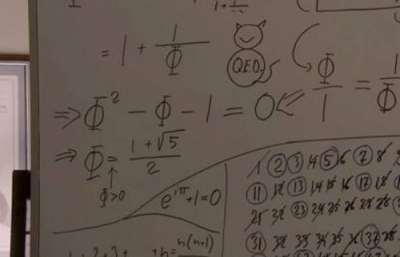 = 1 + 1/Φ
Q.E.D.
Φ/1 = 1/Φ
⇒ Φ² - Φ - 1 = 0 ⇐
⇒ Φ = (1+√5)/2
Φ>0
e^iπ + 1 = 0
1 2 3 4 5 6 7 8
11 12 13 14 15 16 17 18
23 24 25 26
31 32 33 34 35 36 37 38
n(n+1)